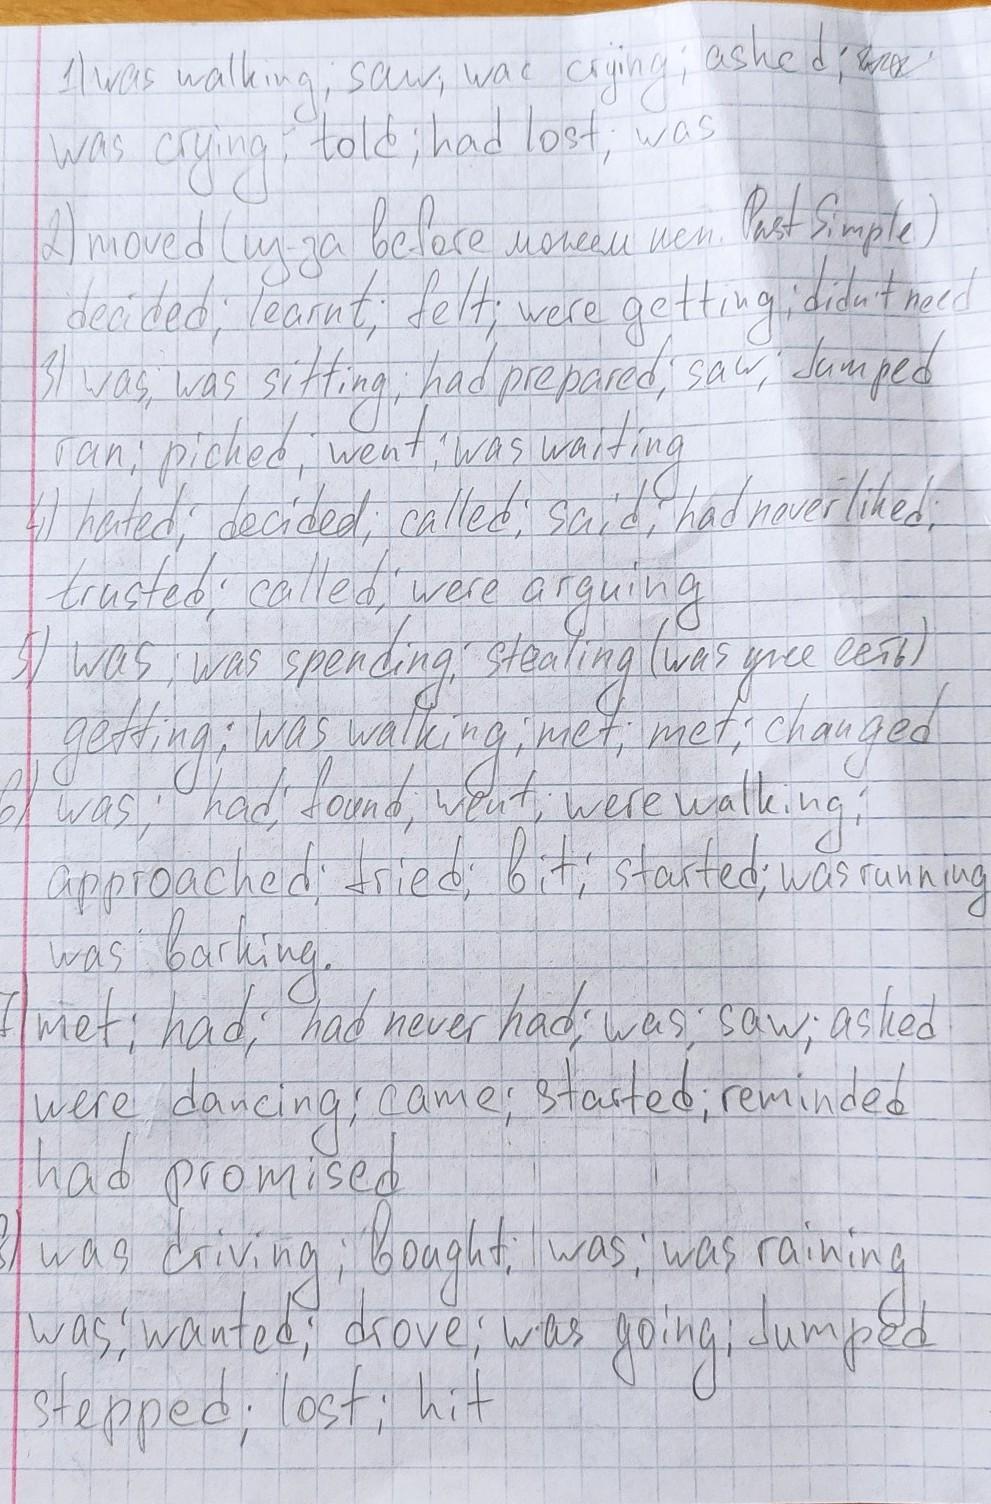 1) was walking; saw; was crying; asked;
was crying; told; had lost; was
2) moved (из-за before можем исп. Past Simple)
decided; learnt; felt; were getting; didn't need
3) was; was sitting; had prepared; saw; Jumped
ran; picked; went; was waiting
4) hated; decided; called; said; had never liked;
trusted; called; were arguing
5) was; was spending; stealing (was уже есть)
getting; was walking; met; met; changed
6) was; had; found; went; were walking;
approached; tried; bit; started; was running
was barking.
7) met; had; had never had; was; saw; asked
were dancing; came; started; reminded
had promised
8) was driving; bought; was; was raining
was; wanted; drove; was going; Jumped
stepped; lost; hit